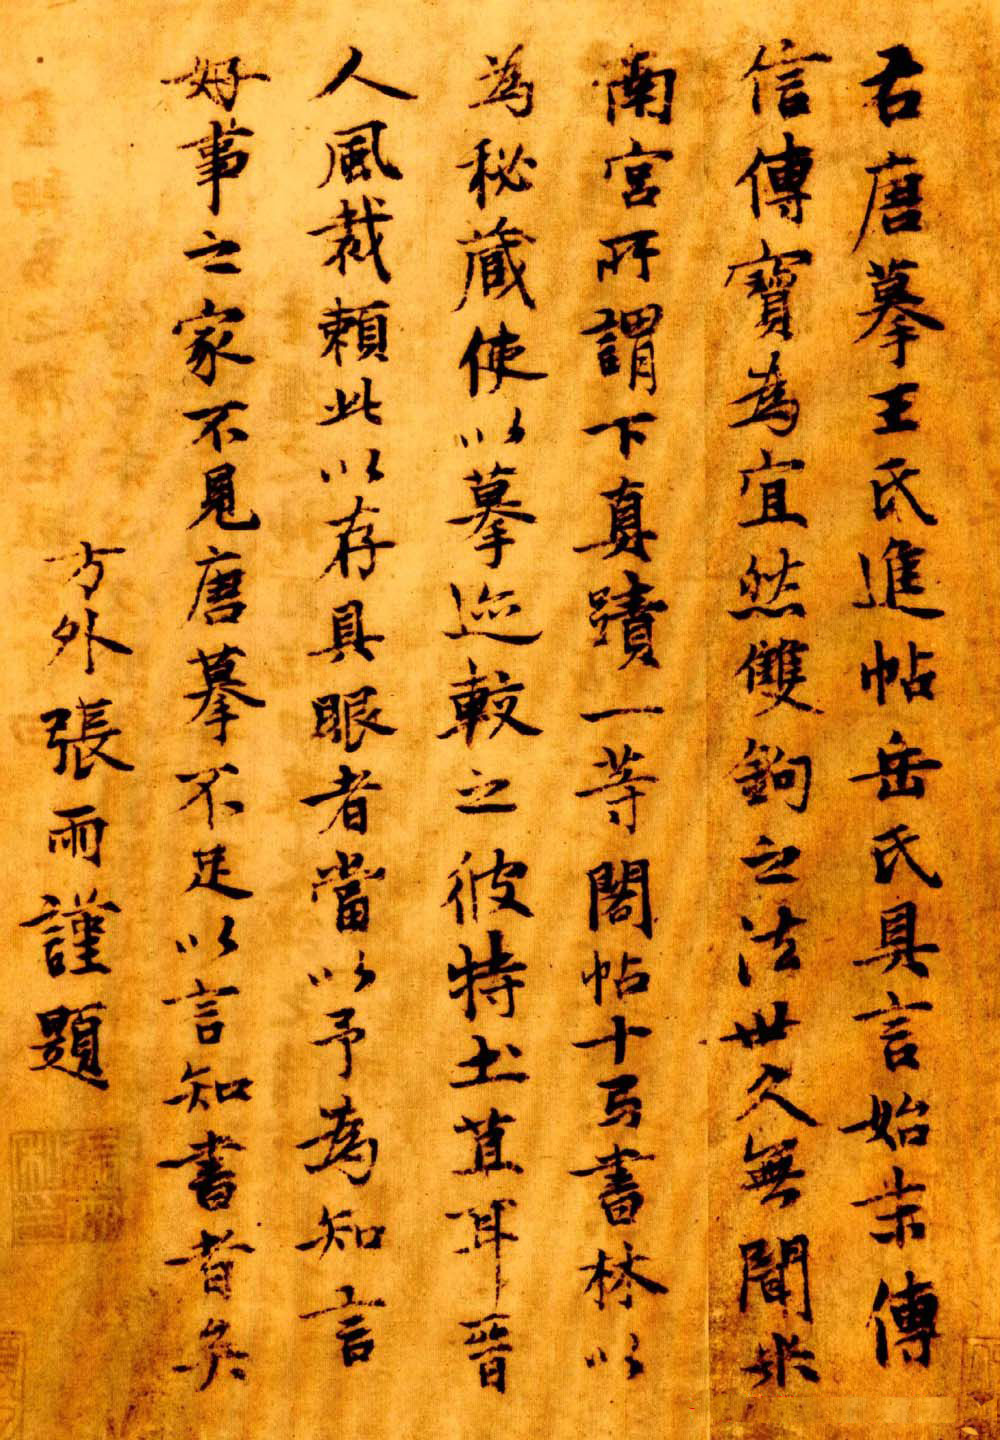 右唐摹王氏進帖岳氏具言始末傳
信傳寶為宜然雙鉤之法世久無聞米
南宮所謂下真蹟一等閣帖十弓書林以
為秘藏使以摹迹較之彼特土苴耳晉
人風裁賴此以存具眼者當以予為知言
好事之家不見唐摹不足以言知書者矣
方外張雨謹題